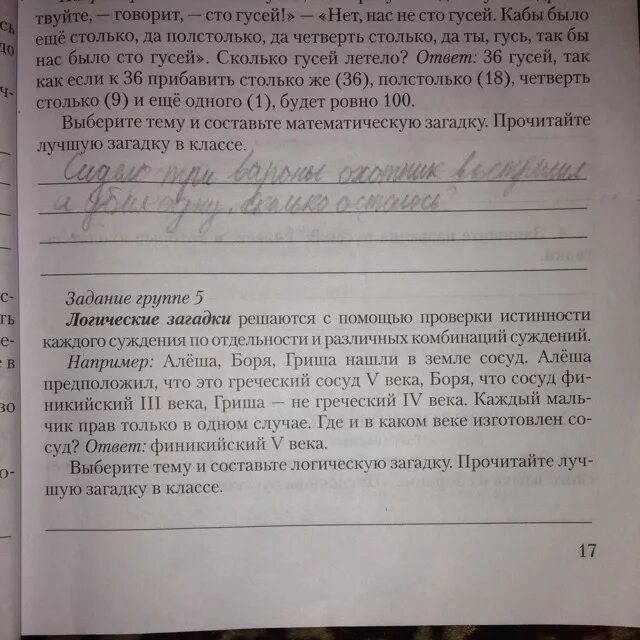 твуйте, — говорит, — сто гусей!» — «Нет, нас не сто гусей. Кабы было
ещё столько, да полстолько, да четверть столько, да ты, гусь, так бы
нас было сто гусей». Сколько гусей летело? Ответ: 36 гусей, так
как если к 36 прибавить столько же (36), полстолько (18), четверть
столько (9) и ещё одного (1), будет ровно 100.
Выберите тему и составьте математическую загадку. Прочитайте
лучшую загадку в классе.
Сидело три вароны охотник выстрелил
и убил одну. сколько осталось
Задание группе 5
Логические загадки решаются с помощью проверки истинности
каждого суждения по отдельности и различных комбинаций суждений.
Например: Алёша, Боря, Гриша нашли в земле сосуд. Алёша
предположил, что это греческий сосуд V века, Боря, что сосуд фи-
никийский III века, Гриша — не греческий IV века. Каждый маль-
чик прав только в одном случае. Где и в каком веке изготовлен со-
суд? Ответ: финикийский V века.
Выберите тему и составьте логическую загадку. Прочитайте луч-
шую загадку в классе.
17